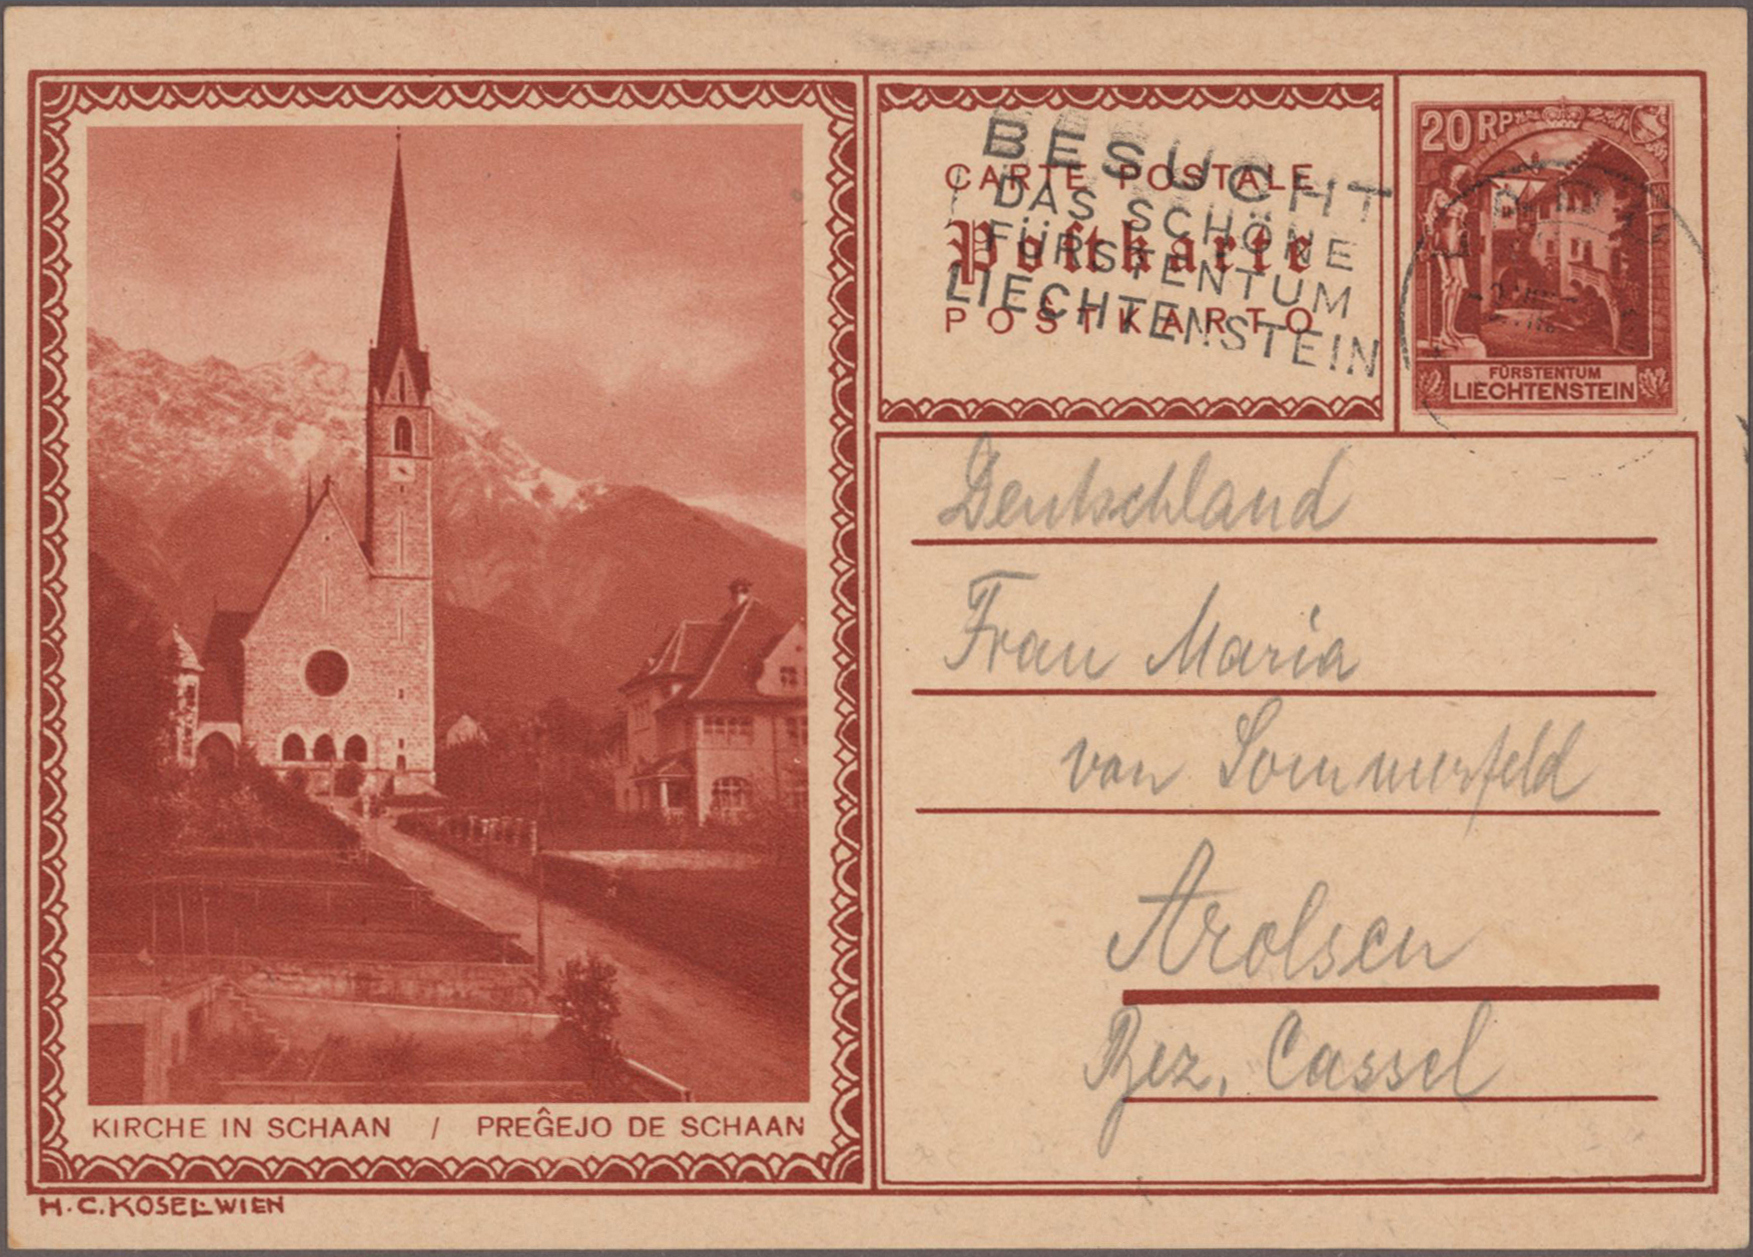 KIRCHE IN SCHAAN / PREĜEJO DE SCHAAN
H. C. KOSEL-WIEN
CARTE POSTALE
Postkarte
POŜTKARTO
BESUCHT
DAS SCHÖNE
FÜRSTENTUM
LIECHTENSTEIN
20 RP
FÜRSTENTUM
LIECHTENSTEIN
Deutschland
Frau Maria
von Sommerfeld
Arolsen
Bez. Cassel